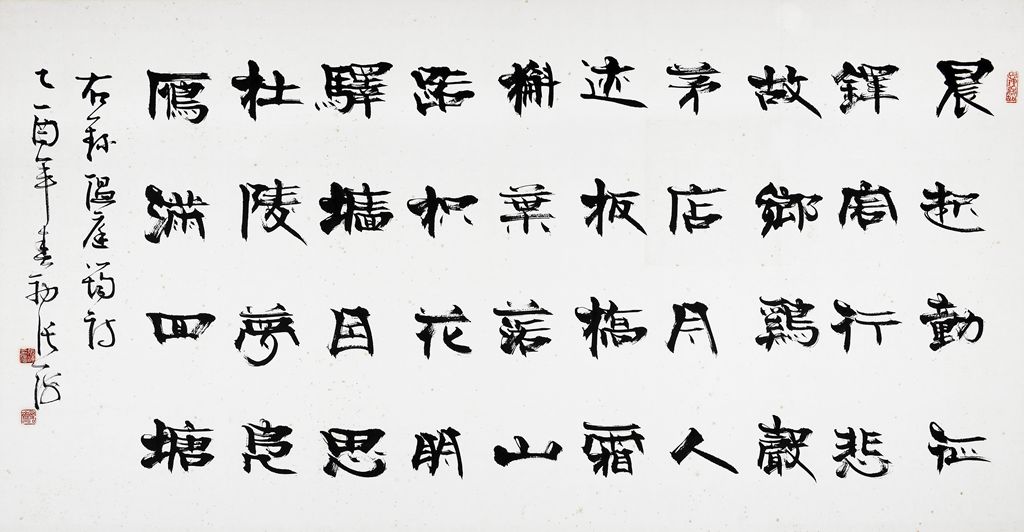 晨起動征
鐸客行悲
故鄉鷄聲
茅店月人
迹板橋霜
槲葉落山
路枳花明
驛墻因思
杜陵夢鳧
雁滿回塘
右錄溫庭筠詩
乙酉年春初